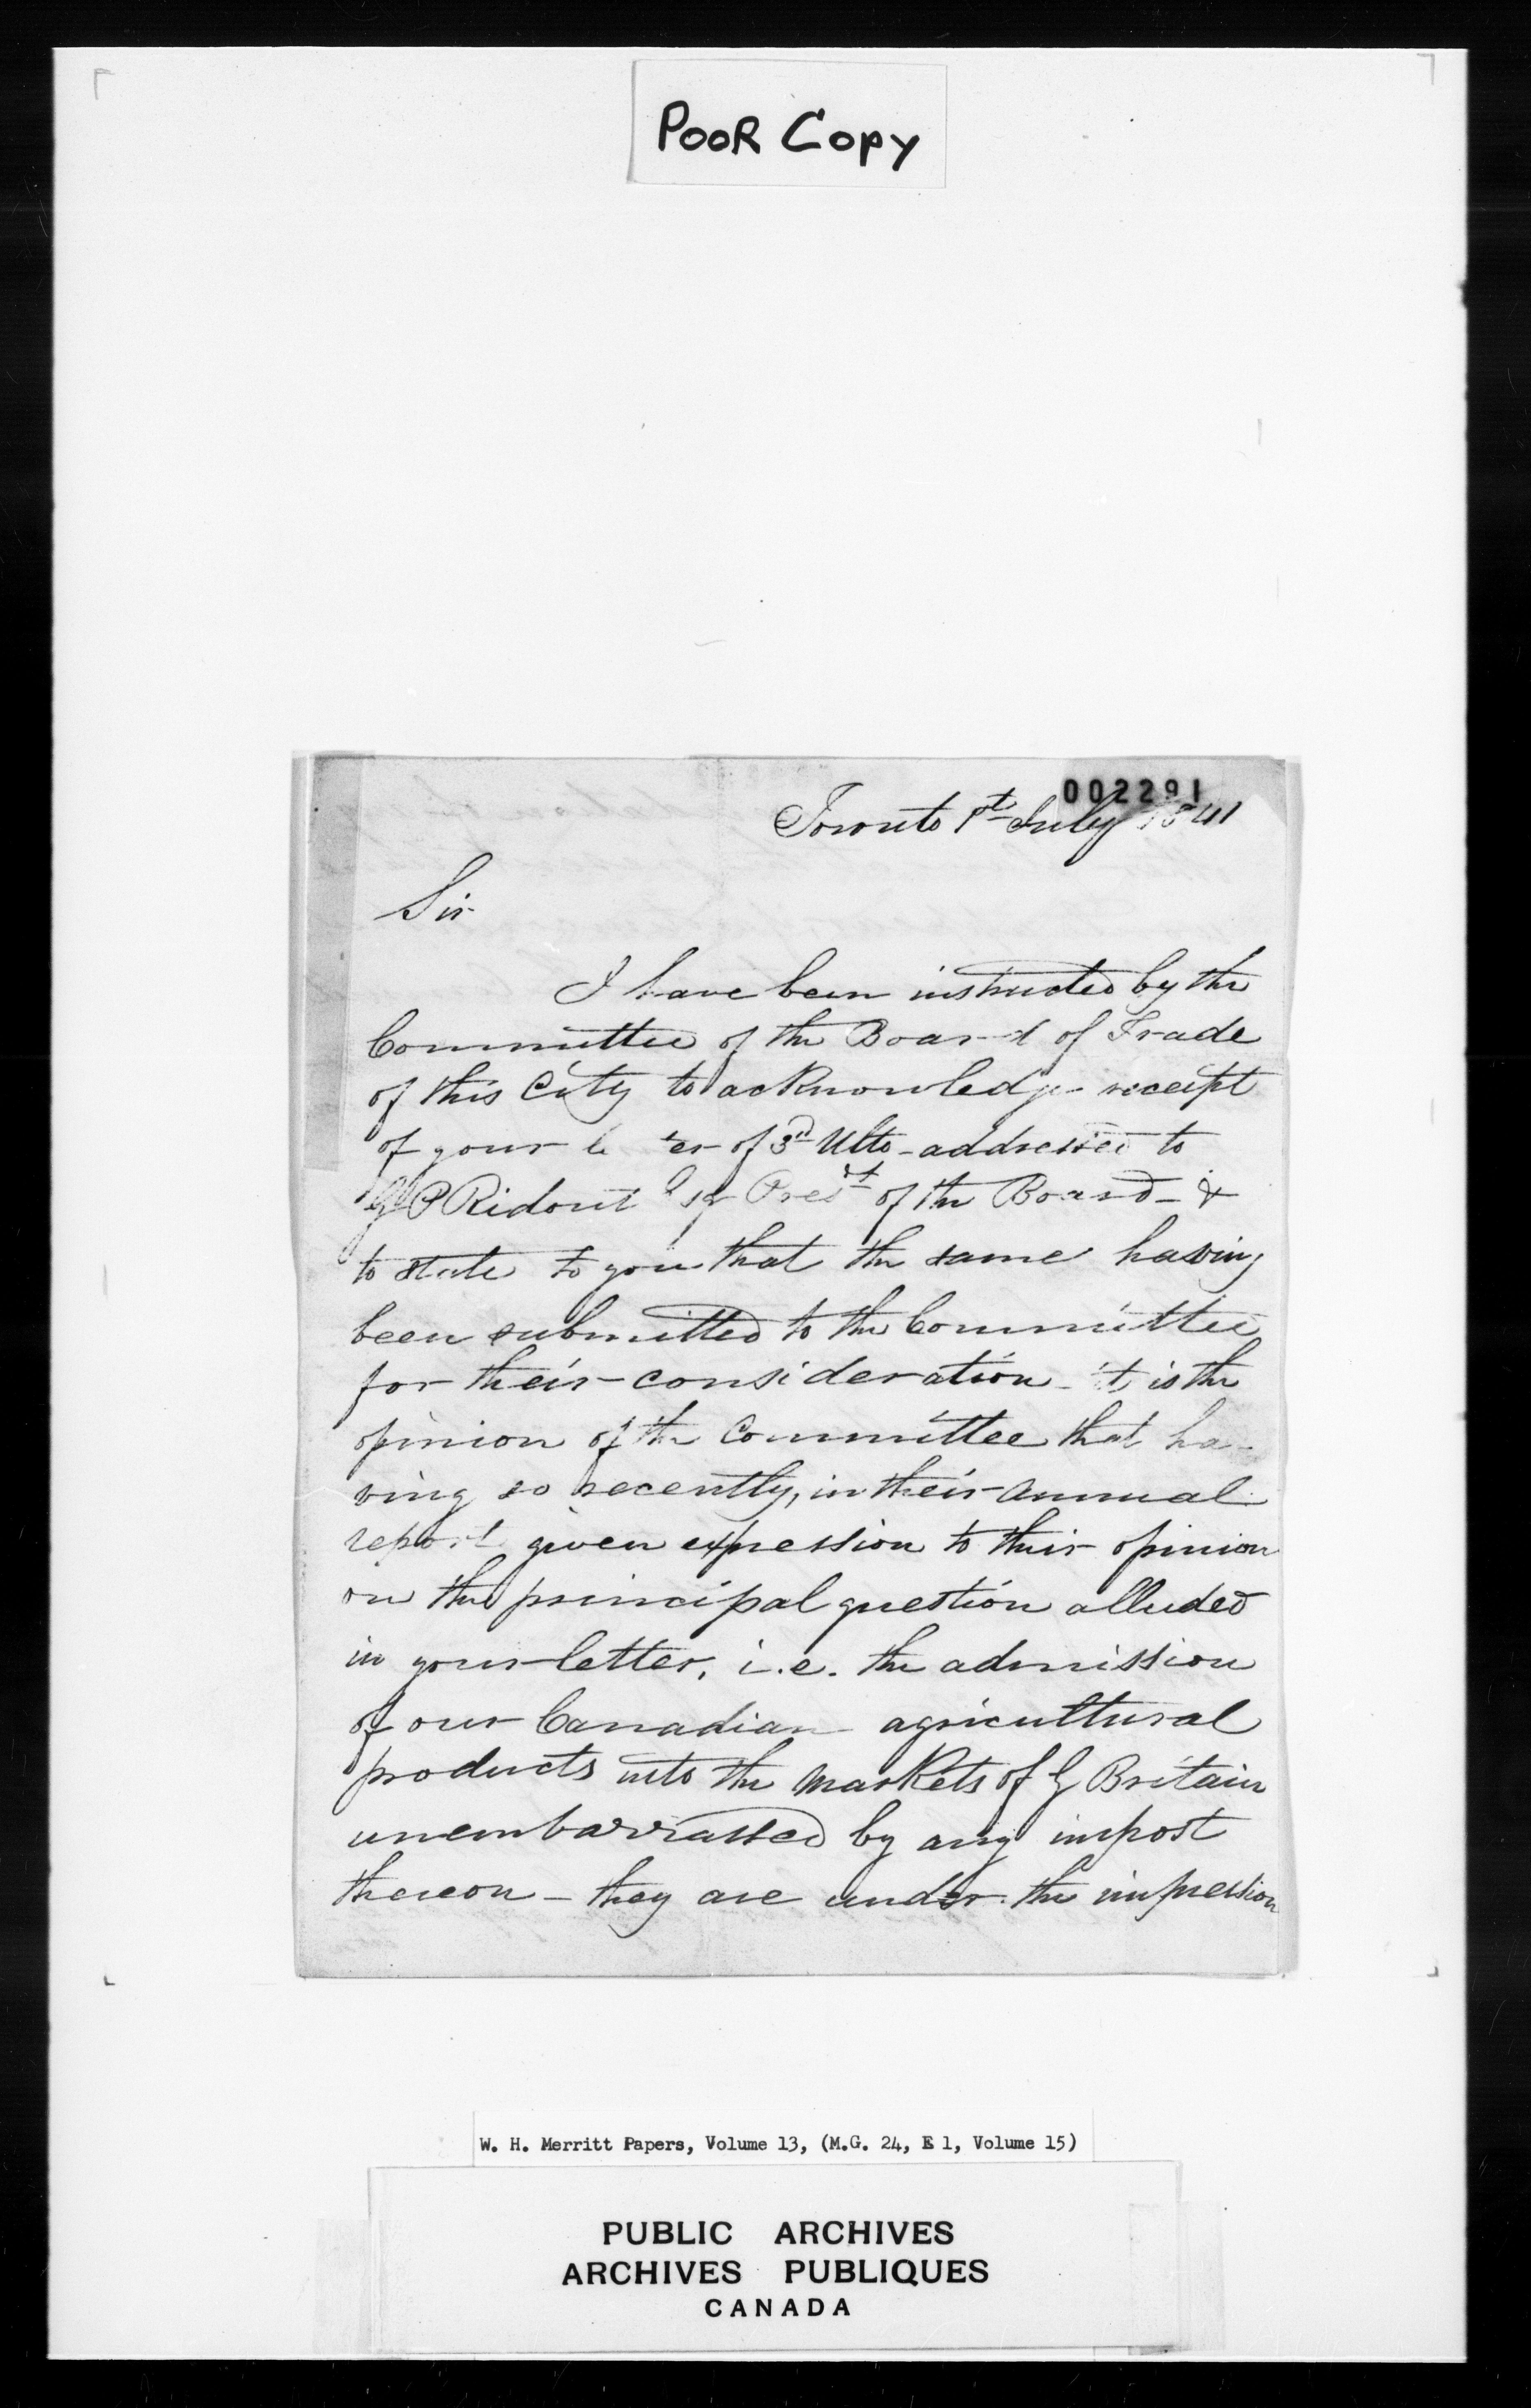 POOR COPY
002291
Toronto 1st July 1841
Sir
I have been instructed by the
Committee of the Board of Trade
of this City to acknowledge receipt
of your le ter of 3rd Ulto - addressed to
G P Ridout Esq Prest of the Board - &
to state to you that the same having
been submitted to the Committee
for their consideration - it is the
opinion of the Committee that ha-
ving so recently, in their annual
report given expression to their opinion
on the principal question alluded
in your letter, i.e. the admission
of our Canadian agricultural
products into the markets of G Britain
unembarrassed by any impost
thereon - they are under the impression
W. H. Merritt Papers, Volume 13, (M.G. 24, E 1, Volume 15)
PUBLIC ARCHIVES
ARCHIVES PUBLIQUES
CANADA